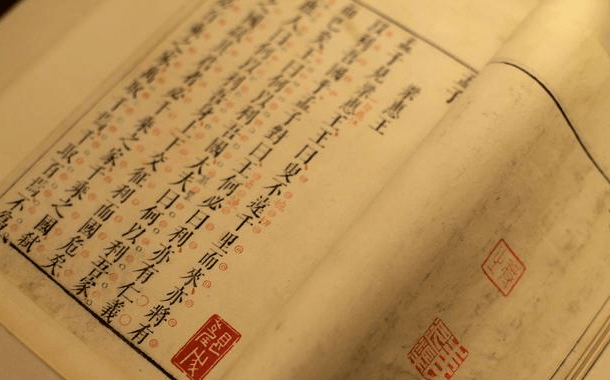 孟子
梁惠王
孟子見梁惠王王曰叟不遠千里而來亦將有
以利吾國乎孟子對曰王何必曰利亦有仁義
已矣王曰何以利吾國大夫曰何以利吾家
人曰何以利吾身上下交征利而國危矣
之國弒其君者必千乘之家千乘之國弒
之家萬取千焉千取百焉不為